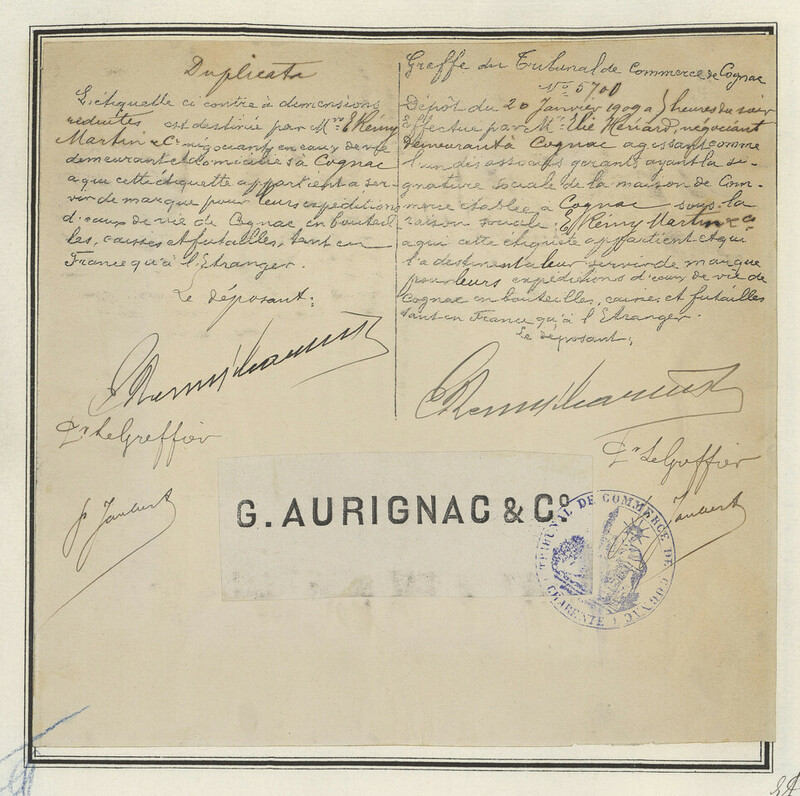 Duplicata
L'étiquette ci contre à dimensions
réduites est destinée par Mrs E Rémy
Martin & Co négociants en eaux de vie
demeurant et domiciliés à Cognac
a qui cette étiquette appartient a ser-
vir de marque pour leurs expéditions
d'eaux de vie de Cognac en bouteil
les, caisses et futailles, tant en
France qu'à l'Etranger.
Le déposant:
E Remy Martin
Pr Le Greffier
P Jaubert
Greffe du Tribunal de Commerce de Cognac
No 5700
Dépôt du 20 Janvier 1909 à 5 heures du soir
Effectué par Mr Elie Hériard, négociant
demeurant à Cognac agissant comme
l'un des associés gérants ayant la si-
gnature sociale de la maison de Com-
merce établie à Cognac sous la
raison sociale: E Rémy Martin & Co
a qui cette étiquette appartient et qui
l'a destinent a leur servir de marque
pour leurs expéditions d'eaux de vie de
Cognac en bouteilles, caisses et futailles
tant en France qu'à l'Etranger.
Le déposant:
E Remy Martin
Pr Le Greffier
Jaubert
G. AURIGNAC & Co
TRIBUNAL DE COMMERCE DE COGNAC
(CHARENTE)